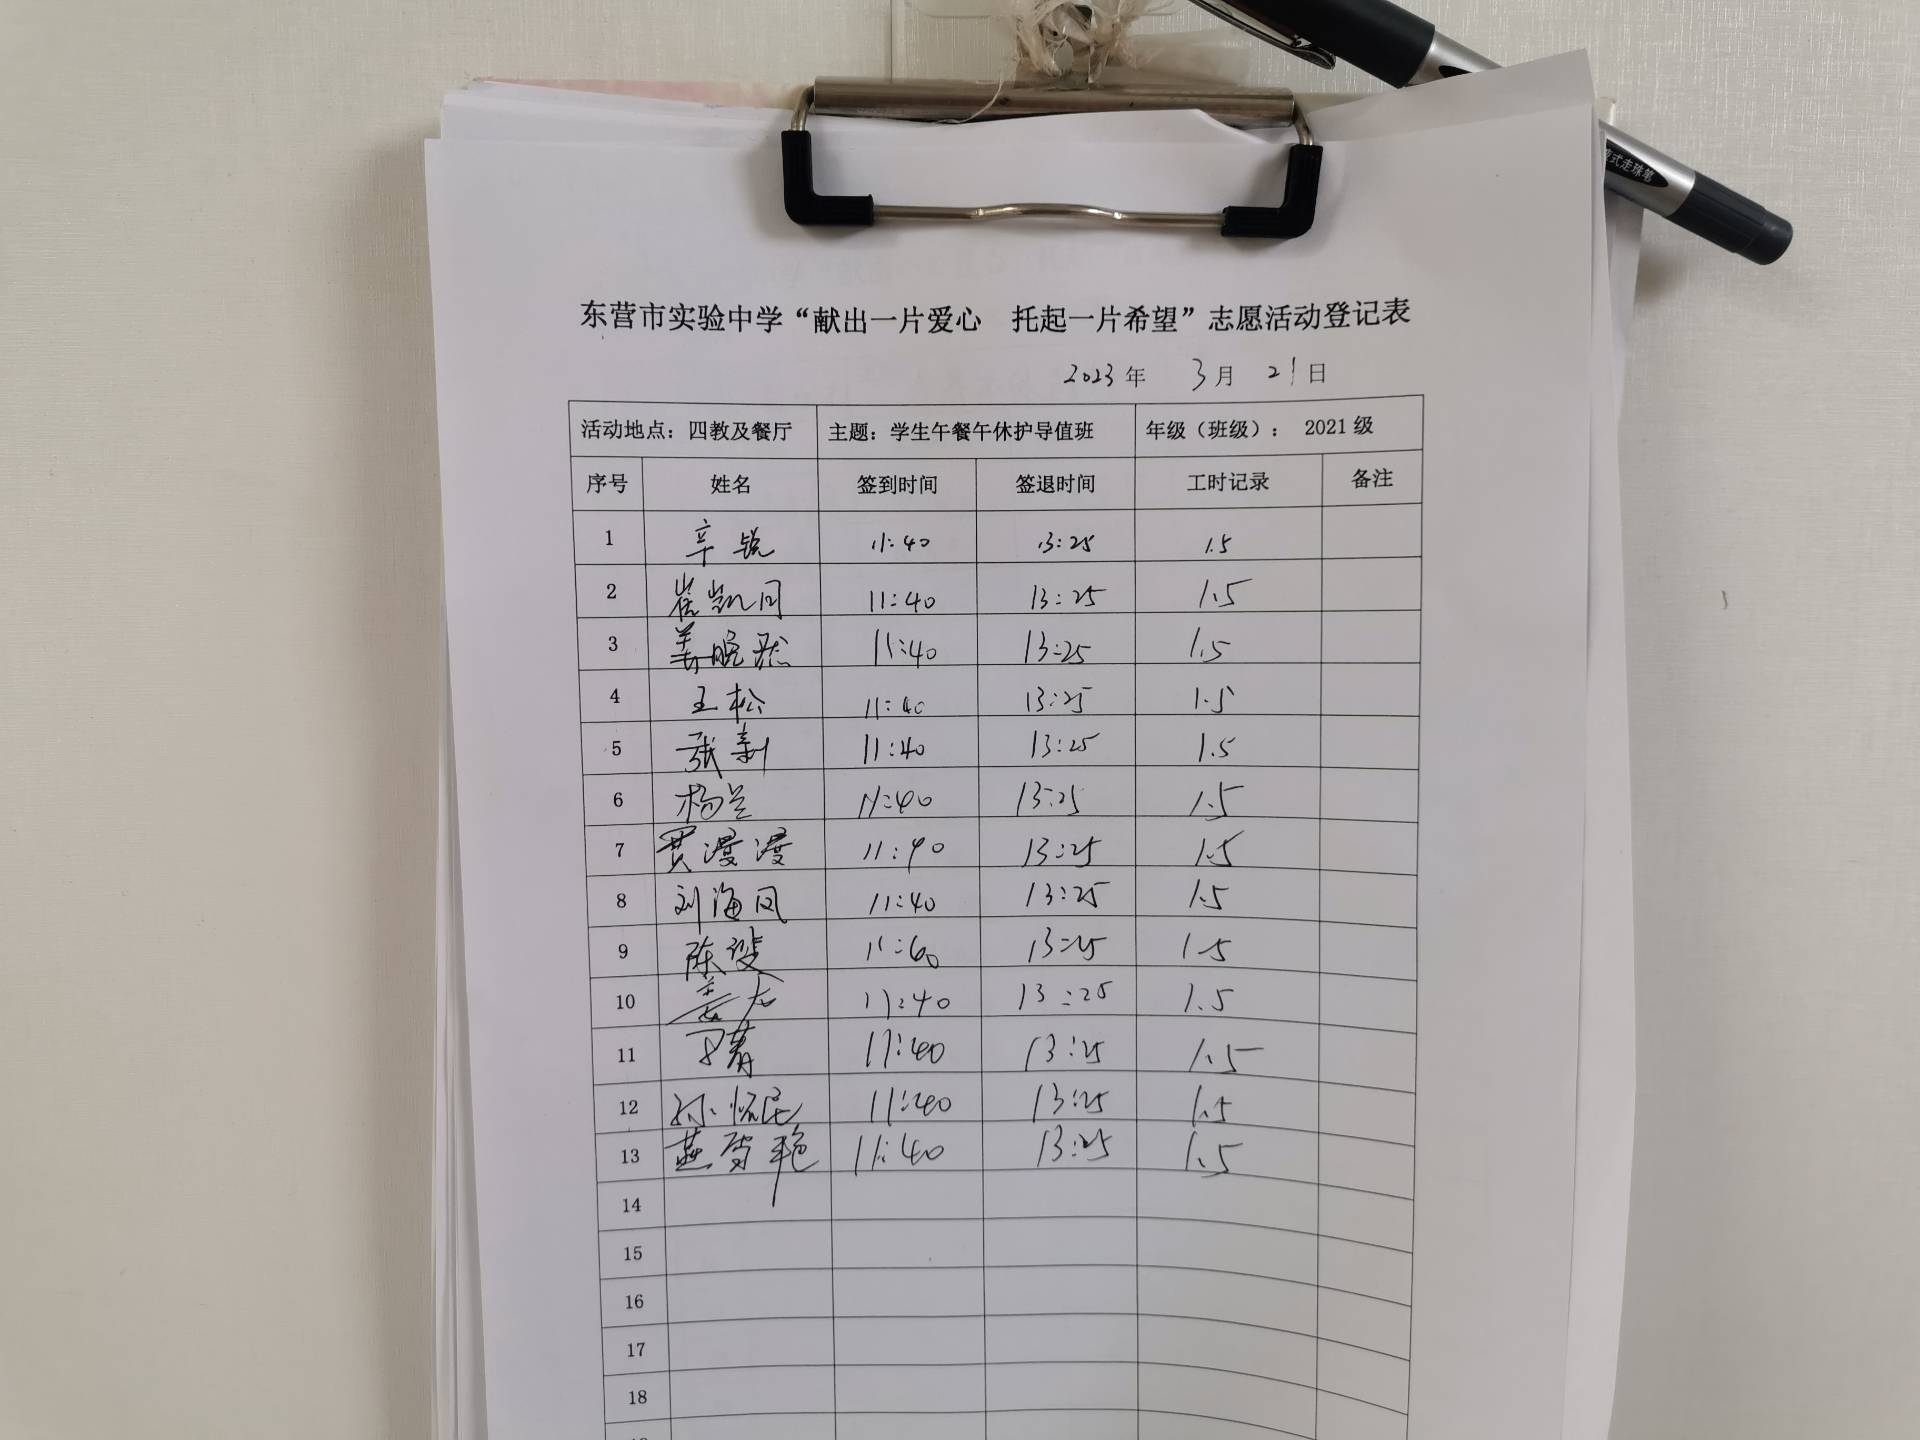 东营市实验中学“献出一片爱心 托起一片希望”志愿活动登记表
2023年 3月 21日
活动地点：四教及餐厅 主题：学生午餐午休护导值班 年级（班级）： 2021级
序号 姓名 签到时间 签退时间 工时记录 备注
1 辛锐 11:40 13:25 1.5
2 崔凯同 11:40 13:25 1.5
3 姜晓燕 11:40 13:25 1.5
4 王松 11:40 13:25 1.5
5 张 11:40 13:25 1.5
6 杨兰 11:40 13:25 1.5
7 贾漫漫 11:40 13:25 1.5
8 刘海凤 11:40 13:25 1.5
9 陈 11:40 13:25 1.5
10 11:40 13:25 1.5
11 11:40 13:25 1.5
12 孙怀民 11:40 13:25 1.5
13 燕雪艳 11:40 13:25 1.5
14
15
16
17
18
式走珠笔